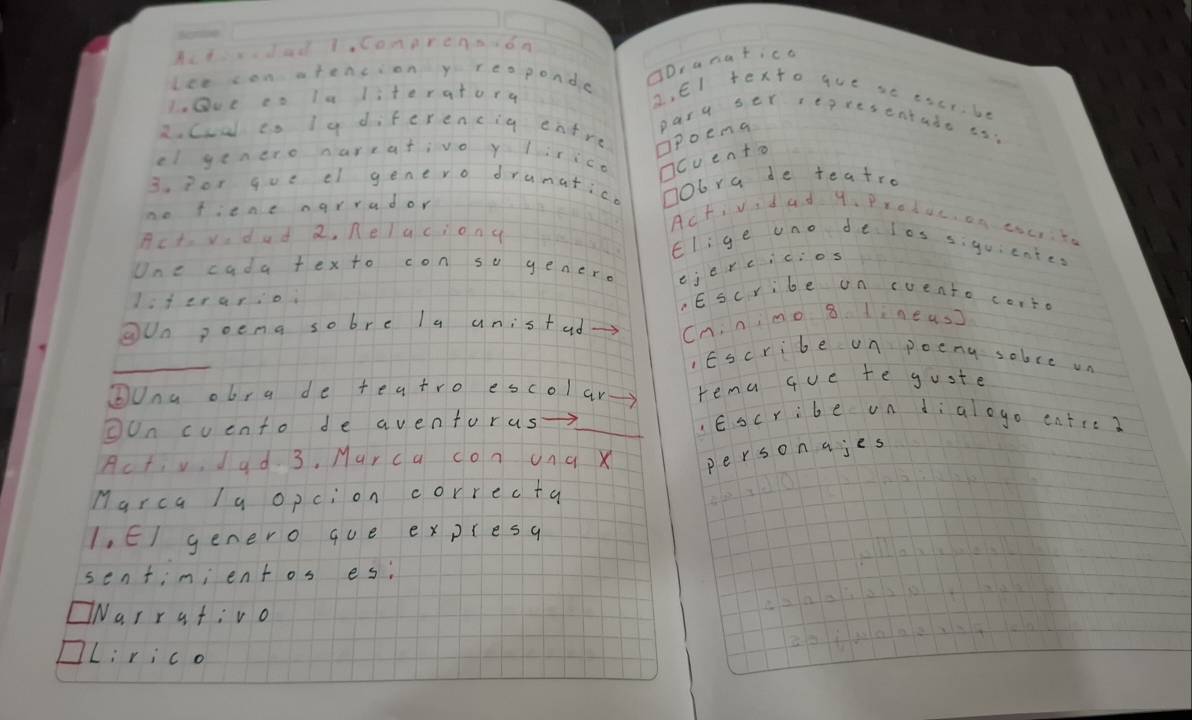 Actividad 1. Comprensión
Lee con atencion y responde
1. Que es la literatura
2. Cual es la diferencia entre
el genero narrativo y lirico
3. Por que el genero dramatico
no tiene narrador
Actividad 2. Relaciona
Une cada texto con su genero
literario:
a Un poema sobre la amistad →
b Una obra de teatro escolar →
c Un cuento de aventuras →
Actividad 3. Marca con una X
Marca la opcion correcta
1. El genero que expresa
sentimientos es:
□ Narrativo
□ Lirico
□ Dramatico
2. El texto que se escribe
para ser representado es:
□ Poema
□ Cuento
□ Obra de teatro
Actividad 4. Produccion escrita
Elige uno de los siguientes
ejercicios
. Escribe un cuento corto
(minimo 8 lineas)
. Escribe un poema sobre un
tema que te guste
. Escribe un dialogo entre 2
personajes